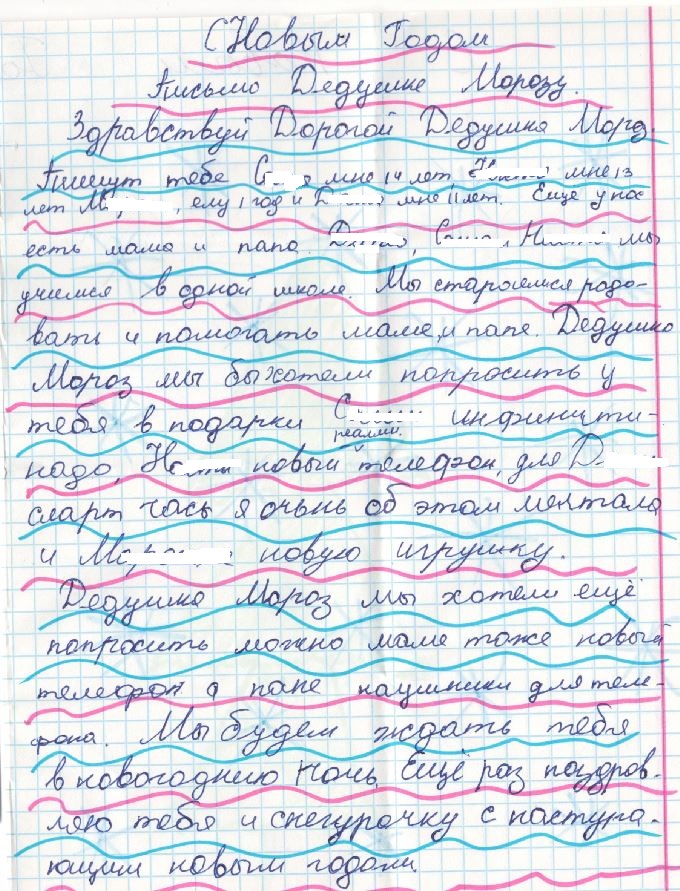 С Новым Годом
Письмо Дедушке Морозу.
Здравствуй Дорогой Дедушка Мороз.
Пишут тебе мне 14 лет, мне 13
лет ему 1 год и мне 11 лет. Еще у нас
есть мама и папа. мы
учимся в одной школе. Мы стараемся радо-
вать и помогать маме, и папе. Дедушка
Мороз мы бы хотели попросить у
тебя в подарки инфинити-
реалми.
надо, новый телефон, для
смарт часы я очьнь об этом мечтала
и новую игрушку.
Дедушка Мороз мы хотели ещё
попросить можно маме тоже новый
телефон а папе наушники для теле-
фона. Мы будем ждать тебя
в новогоднию ночь. Ещё раз поздров-
ляю тебя и снегурочку с наступа-
ющим новым годом.